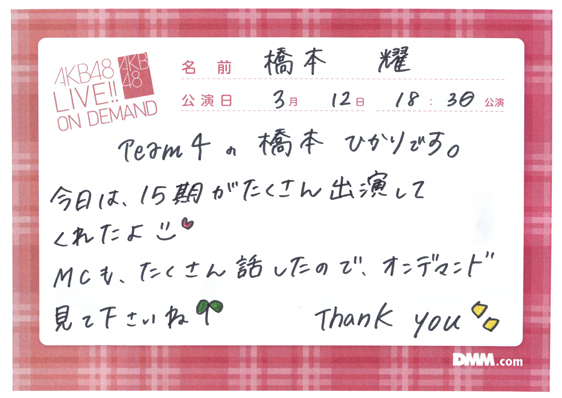 AKB48
LIVE!!
ON DEMAND
AKB
48
名前 橋本 耀
公演日 3月 12日 18:30 公演
Team 4 の 橋本 ひかりです。
今日は、15期がたくさん出演して
くれたよ
MCも、たくさん話したので、オンデマンド
見て下さいね
Thank you
DMM.com